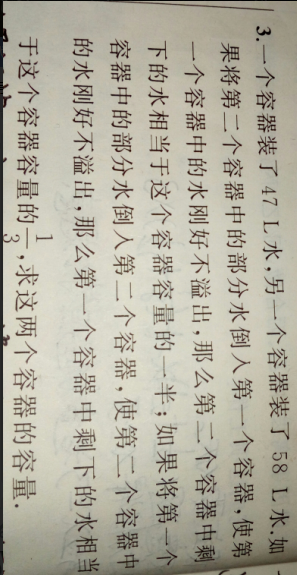 3.一个容器装了 47 L 水,另一个容器装了 58 L 水.如
果将第二个容器中的部分水倒入第一个容器,使第
一个容器中的水刚好不溢出,那么第二个容器中剩
下的水相当于这个容器容量的一半;如果将第一个
容器中的部分水倒入第二个容器,使第二个容器中
的水刚好不溢出,那么第一个容器中剩下的水相当
于这个容器容量的1/3,求这两个容器的容量.